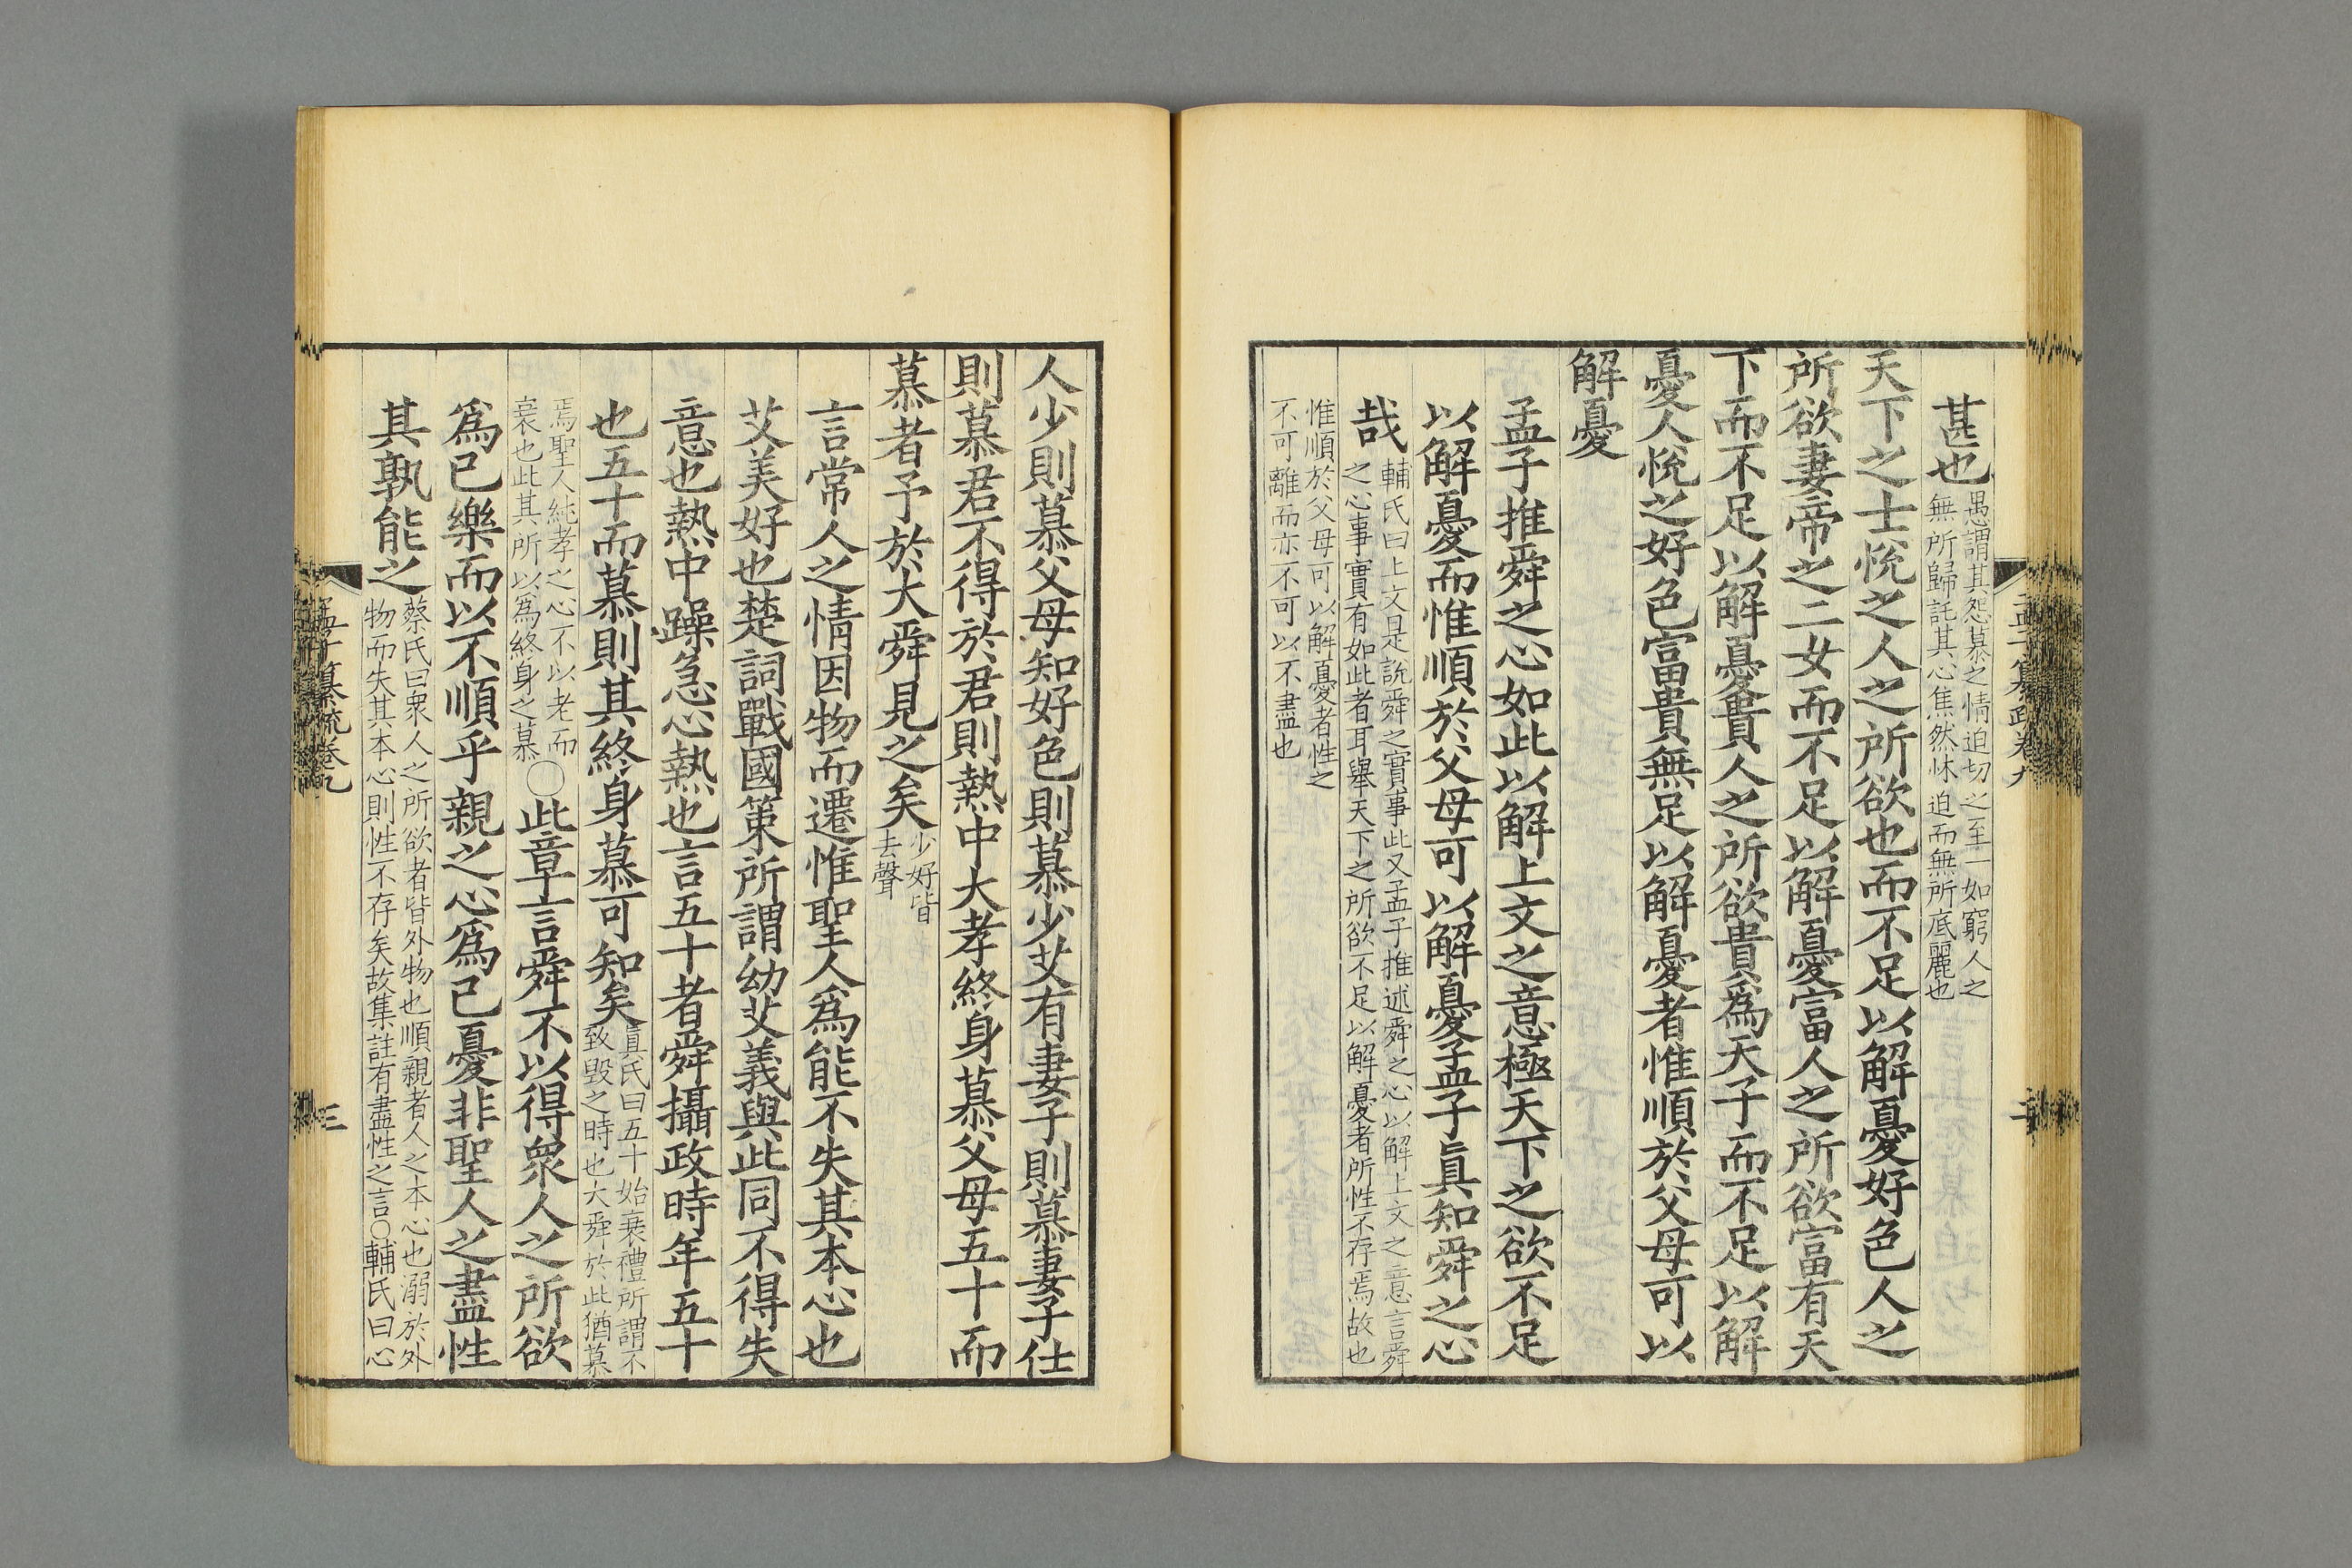 甚也愚謂其怨慕之情迫切之至一如窮人之
無所歸託其心焦然怵迫而無所底麗也
天下之士悅之人之所欲也而不足以解憂好色人之
所欲妻帝之二女而不足以解憂富人之所欲富有天
下而不足以解憂貴人之所欲貴爲天子而不足以解
憂人悅之好色富貴無足以解憂者惟順於父母可以
解憂
孟子推舜之心如此以解上文之意極天下之欲不足
以解憂而惟順於父母可以解憂孟子眞知舜之心
哉輔氏曰上文是說舜之實事此又孟子推述舜之心以解上文之意言舜
之心事實有如此者耳舉天下之所欲不足以解憂者所性不存焉故也
惟順於父母可以解憂者性之
不可離而亦不可以不盡也
孟子纂疏卷九
二
人少則慕父母知好色則慕少艾有妻子則慕妻子仕
則慕君不得於君則熱中大孝終身慕父母五十而
慕者予於大舜見之矣少好皆
去聲
言常人之情因物而遷惟聖人爲能不失其本心也
艾美好也楚詞戰國策所謂幼艾義與此同不得失
意也熱中躁急心熱也言五十者舜攝政時年五十
也五十而慕則其終身慕可知矣眞氏曰五十始衰禮所謂不
致毀之時也大舜於此猶慕
焉聖人純孝之心不以老而
衰也此其所以爲終身之慕〇此章言舜不以得衆人之所欲
爲己樂而以不順乎親之心爲己憂非聖人之盡性
其孰能之蔡氏曰衆人之所欲者皆外物也順親者人之本心也溺於外
物而失其本心則性不存矣故集註有盡性之言〇輔氏曰心
孟子纂疏卷九
三